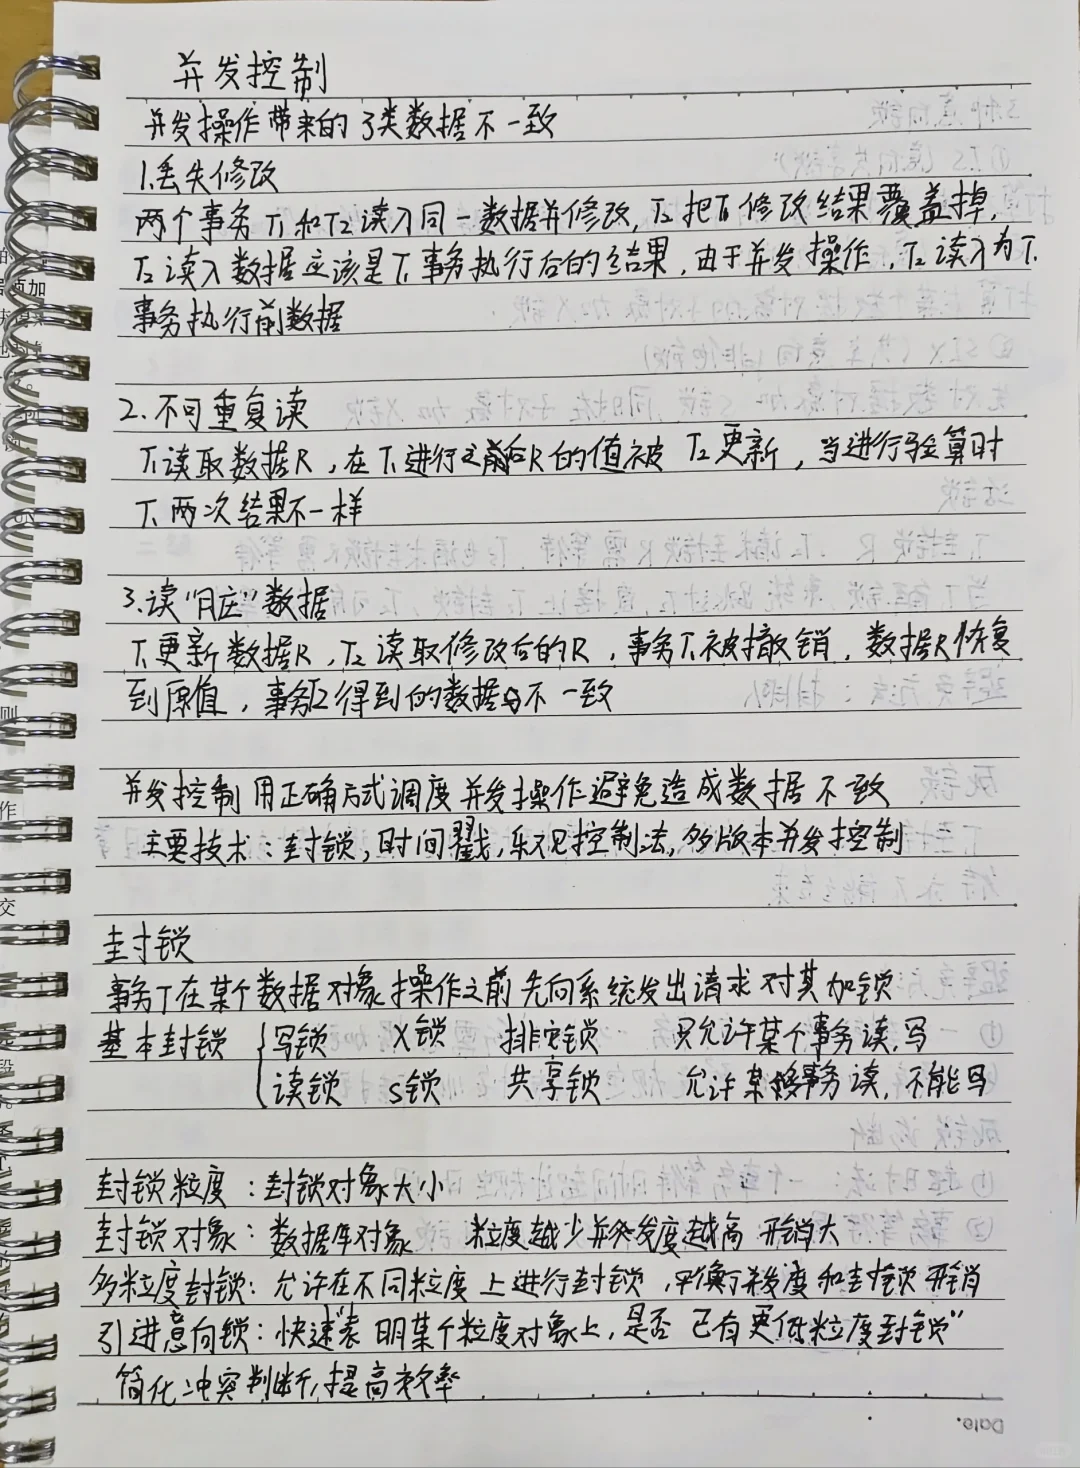 并发控制
并发操作带来的3类数据不一致
1.丢失修改
两个事务T1和T2读入同一数据并修改,T2把T1修改结果覆盖掉,
T2读入数据应该是T1事务执行后的结果,由于并发操作,T2读入为T1
事务执行前数据
2.不可重复读
T1读取数据R,在T1进行之前后R的值被T2更新,当进行验算时
T1两次结果不一样
3.读"脏"数据
T1更新数据R,T2读取修改后的R,事务T1被撤销,数据R恢复
到原值,事务T2得到的数据与不一致
并发控制用正确方式调度并发操作避免造成数据不致
主要技术:封锁,时间戳,乐观控制法,多版本并发控制
封锁
事务T在某个数据对象操作之前先向系统发出请求对其加锁
基本封锁 写锁 X锁 排它锁 只允许某个事务读,写
读锁 S锁 共享锁 允许某事务读,不能写
封锁粒度:封锁对象大小
封锁对象:数据库对象 粒度越少并发度越高 开销大
多粒度封锁:允许在不同粒度上进行封锁,平衡了并发度和封锁开销
引进意向锁:快速"表明某个粒度对象上,是否已有更低粒度封锁"
简化冲突判断,提高效率
Date.